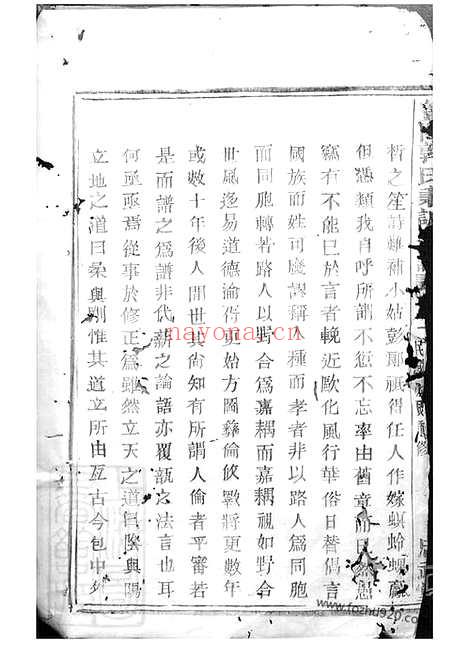 皙之笙詩雖補小姑彭郎祇得任人作嫁螟蛉蜾蠃
但憑類我自呼所謂不愆不忘率由舊章而已然愚
竊有不能已於言者輓近歐化風行華俗日替倡言
國族而姓可廢謬稱人種而孝者非以路人為同胞
而同胞轉若路人以野合為嘉耦而嘉耦視如野合
世風迻易道德淪胥更始方圖彝倫攸斁將更數年
或數十年後人間世其尚知有所謂人倫者乎審若
是而譜之為譜非代薪之論語亦覆瓿之法言也耳
何亟亟焉從事於修正為雖然立天之道曰陰與陽
立地之道曰柔與剛惟其道立所由亙古今包中外
nayona.cn
www.fozhu920.com